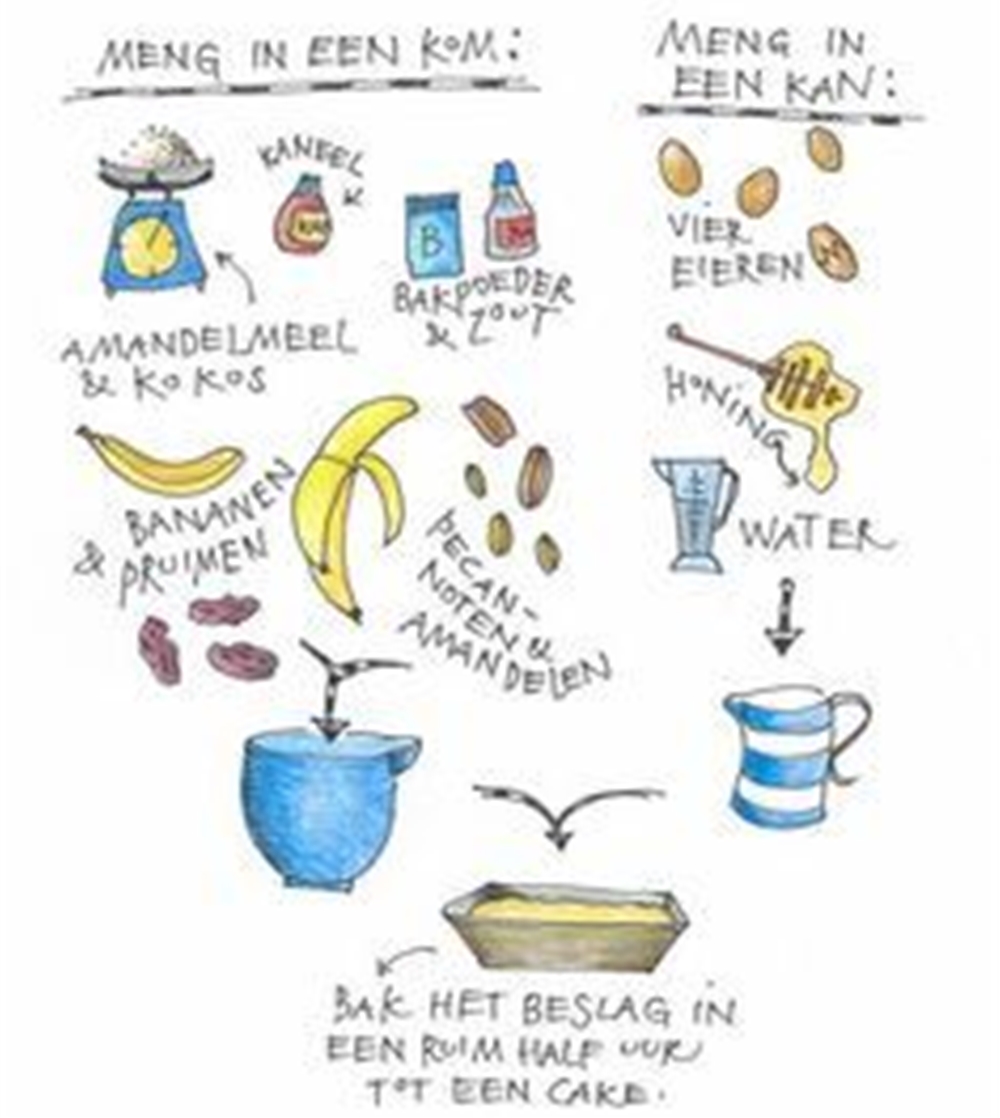 MENG IN EEN KOM:
KANEEL
B
BAKPOEDER
& ZOUT
AMANDELMEEL
& KOKOS
BANANEN
& PRUIMEN
PECAN-
NOTEN &
AMANDELEN
MENG IN
EEN KAN:
VIER
EIEREN
HONING
WATER
BAK HET BESLAG IN
EEN RUIM HALF UUR
TOT EEN CAKE.